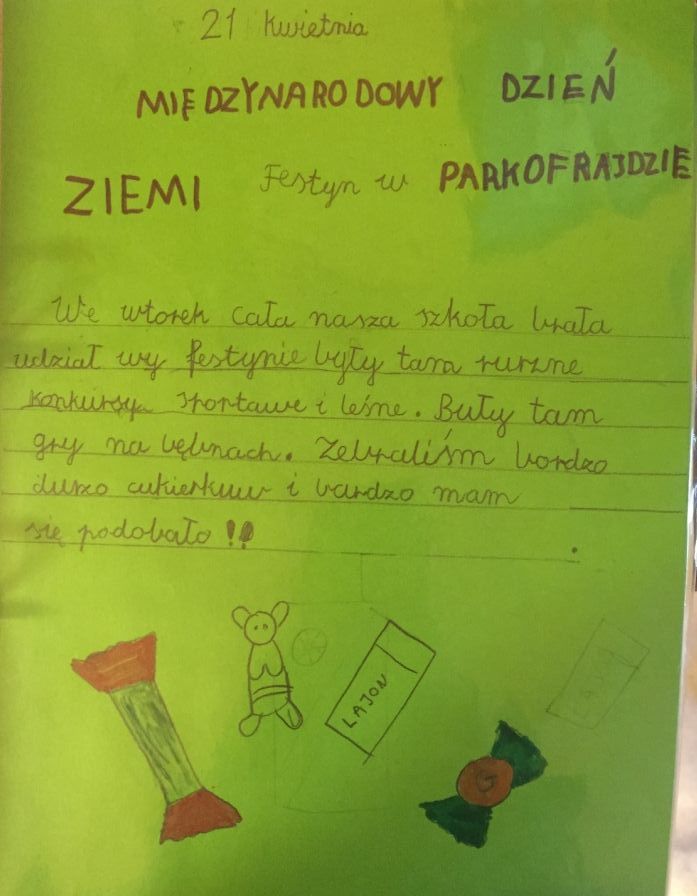 21 Kwietnia
MIĘDZYNARODOWY DZIEŃ
ZIEMI Festyn w PARKOFRAJDZIE
We wtorek cała nasza szkoła brała
udział wy festynie były tam rurzne
konkursy sportawe i leśne. Buły tam
gry na bębnach. Zebraliśm bordzo
dużo cukierkuw i bardzo mam
się podobało !!
LAJON
G